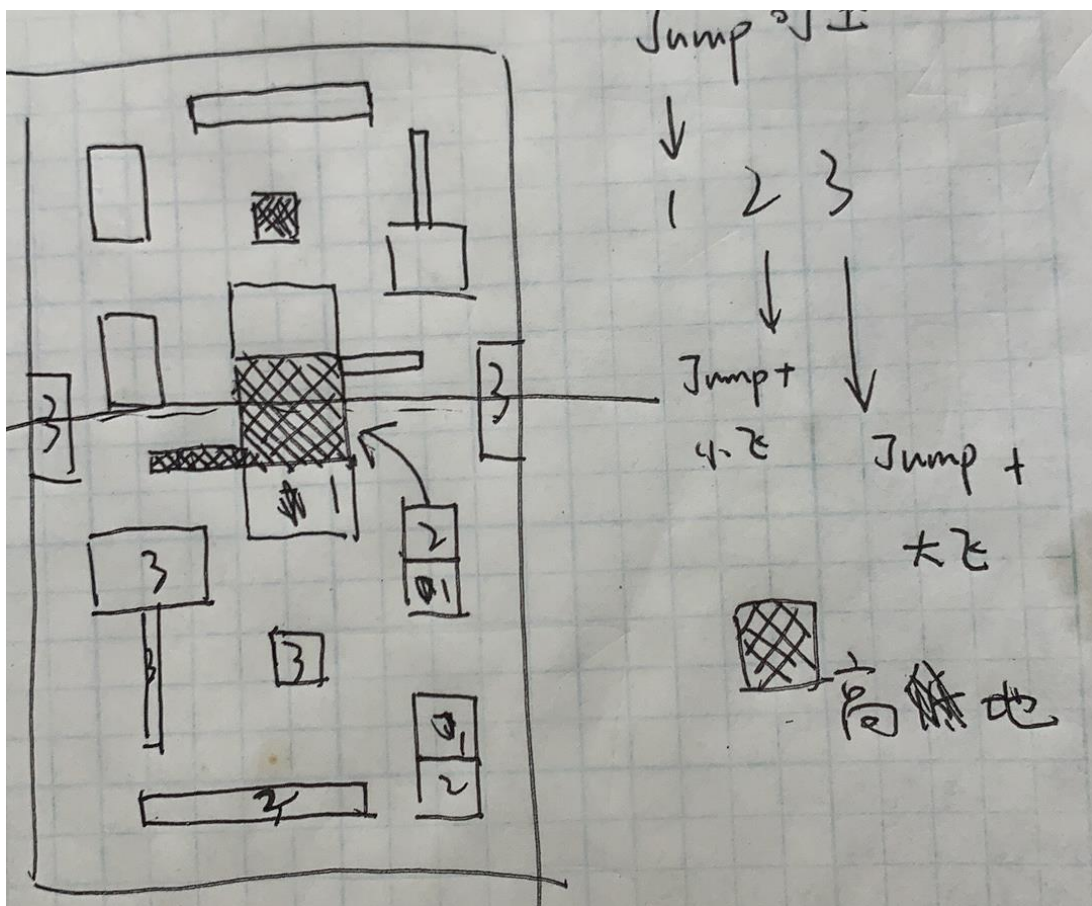 Jump 可上
1 2 3
Jump+
小飞
Jump +
大飞
高 地
3
3
1
2
1
3
3
3
1
2
2